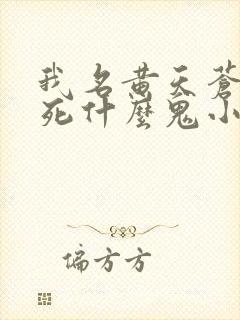 我名黄天蒼
死什麼鬼小
偏方方